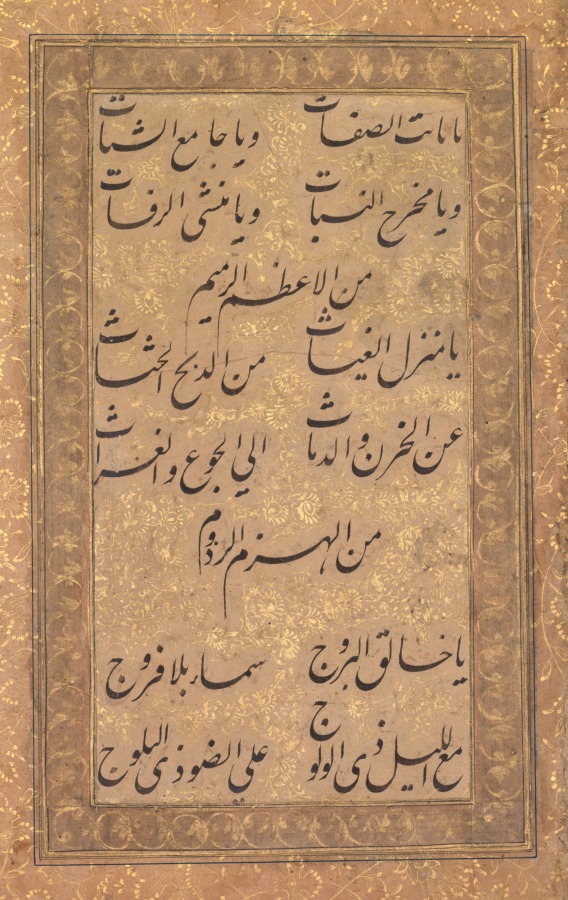 يا ثابت الصفات ويا جامع الشتات
ويا مخرج النبات ويا منشى الرفات
من الاعظم الرميم
يا منزل الغياث من الدلح الحثاث
عن الحزن والدماث الي الجوع والغراث
من الهزم الرذوم
يا خالق البروج سماء بلا فروج
مع الليل ذى الولوج علي الضو ذى البلوج